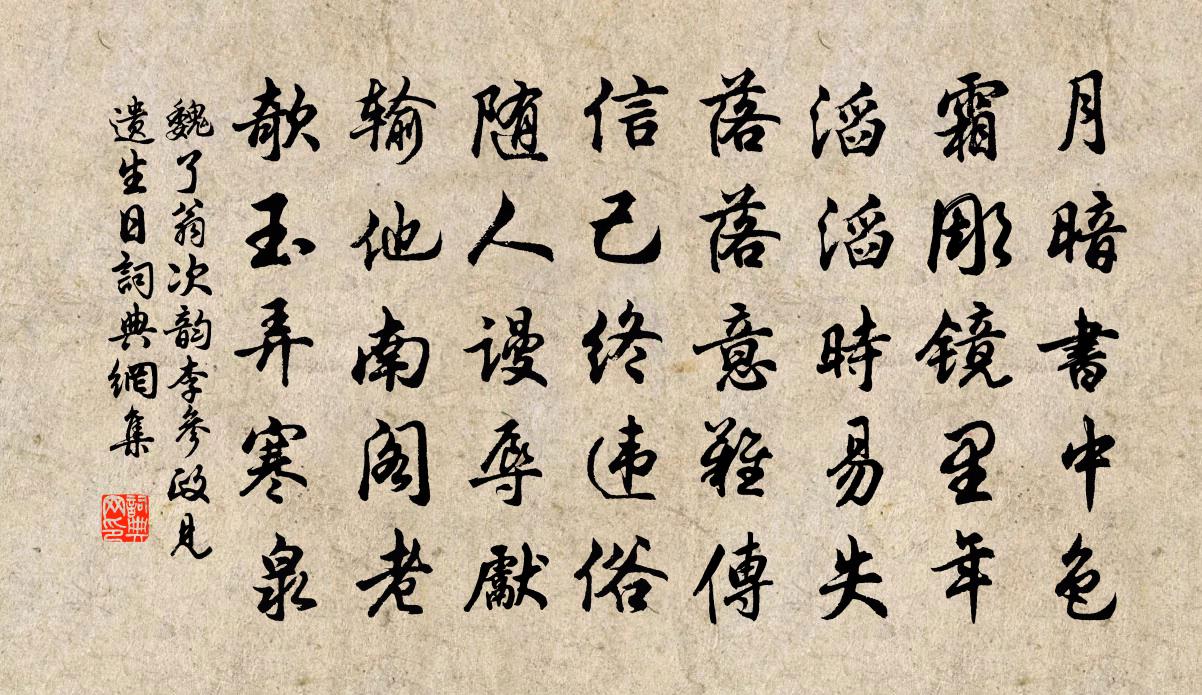 月暗書中色
霜彫鏡里年
滔滔時易失
落落意難傳
信己终违俗
随人謾辱獻
输他南阁老
欹玉弄寒泉
魏了翁次韵李參政見
遺生日詞典網集
詞典网印